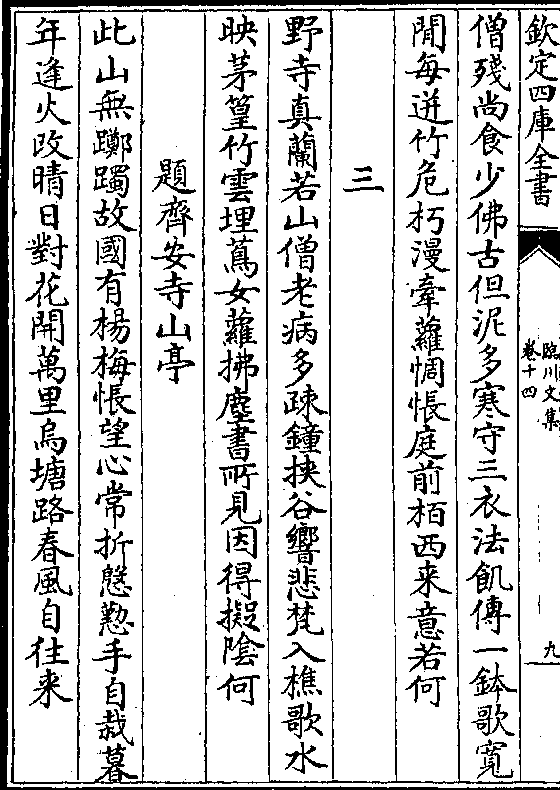 欽定四庫全書
臨川文集
卷十四
九
僧殘尚食少佛古但泥多寒守三衣法飢傳一鉢歌寬
閒每迸竹危朽漫牽蘿惆悵庭前栢西来意若何
三
野寺真蘭若山僧老病多疎鐘挾谷響悲梵入樵歌水
映茅篁竹雲埋蔦女蘿拂塵書所見因得擬陰何
題齊安寺山亭
此山無躑躅故國有楊梅悵望心常折慇懃手自栽暮
年逢火改晴日對花開萬里烏塘路春風自往来